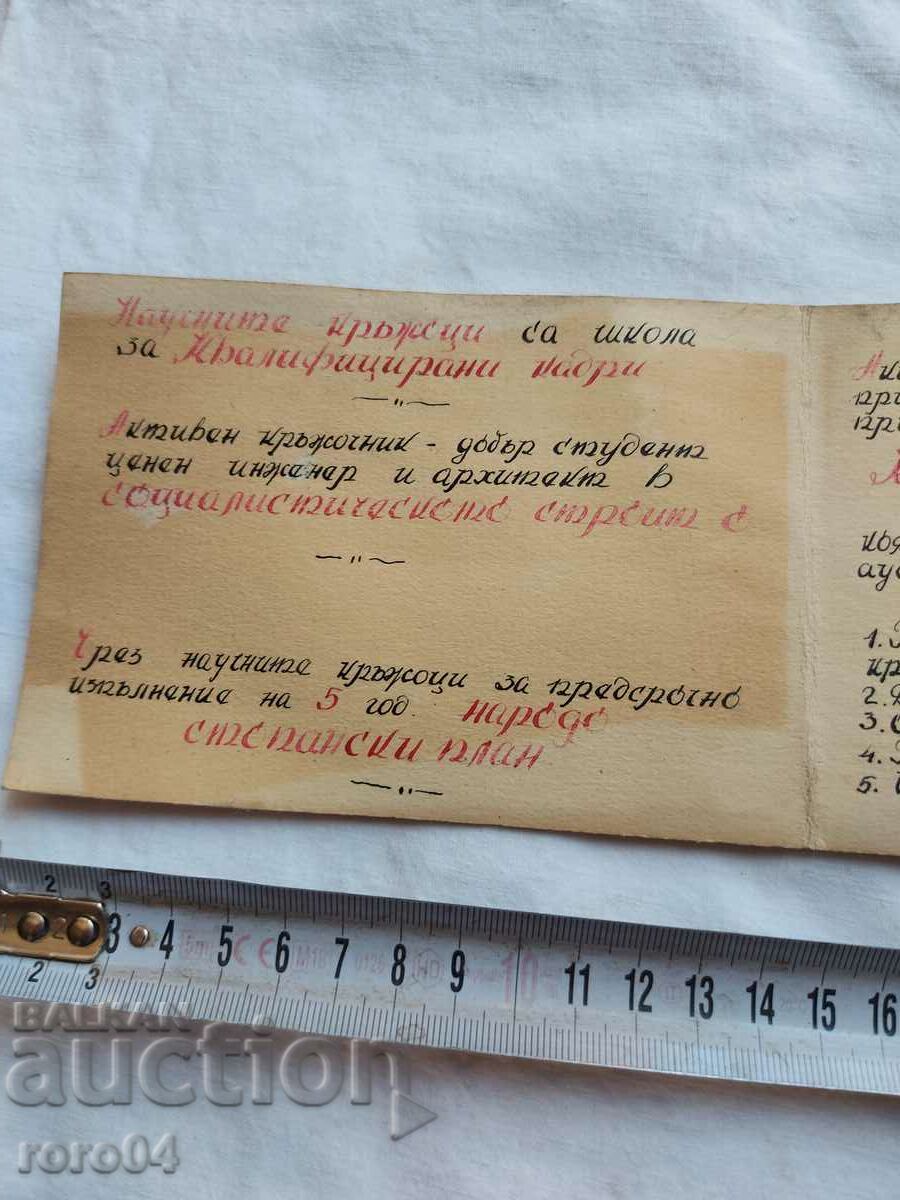 Научните кръжоци са школа
за Квалифицирани кадри
Активен кръжочник - добър студент
ценен инженер и архитект в
социалистическото строит о
Чрез научните кръжоци за предсрочно
изпълнение на 5 год. народо
стопански план
Ак
при
пр
коя
ауд
1.
кр
2.
3.
4.
5.
2 3
1 2 3 4 5 6 7 8 9 10 11 12 13 14 15 16
2 3
5m CE M16 0126
BALKAN
auction
roro04